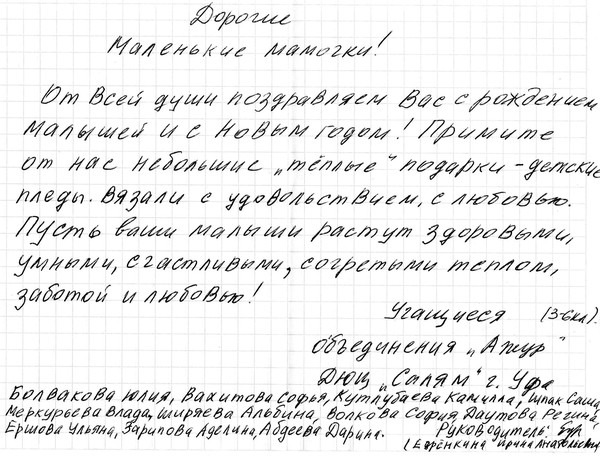 Дорогие
Маленькие мамочки!
От всей души поздравляем Вас с рождением
малышей и с Новым годом! Примите
от нас небольшие „тёплые“ подарки - детские
пледы. Вязали с удовольствием, с любовью.
Пусть ваши малыши растут здоровыми,
умными, счастливыми, согретыми теплом,
заботой и любовью!
Учащиеся (3-6кл).
объединения „Ажур“
ДЮЦ „Салям“ г. Уфа
Болвакова Юлия, Вахитова Софья, Кутлубаева Камилла, Шпак Саша,
Меркурьева Влада, Ширяева Альбина, Волкова София, Даутова Регина,
Ершова Ульяна, Зарипова Аделина, Авдеева Дарина. Руководитель:
(Ефрёнкина Ирина Анатольевна